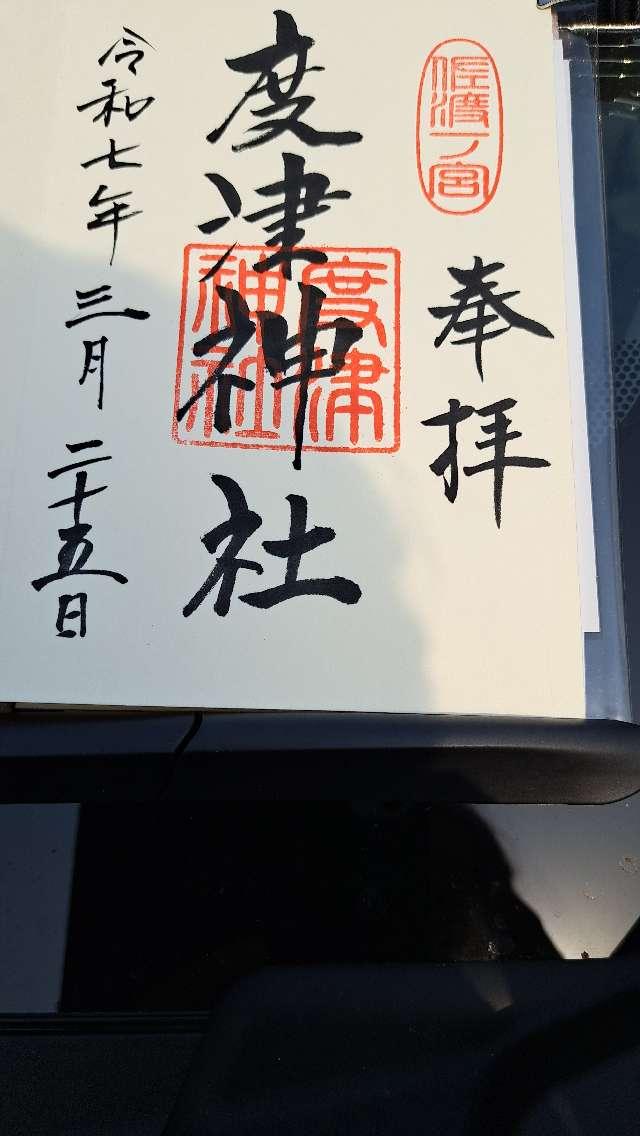 佐渡一ノ宮
奉拝
度津神社
度津神社
令和七年三月二十五日